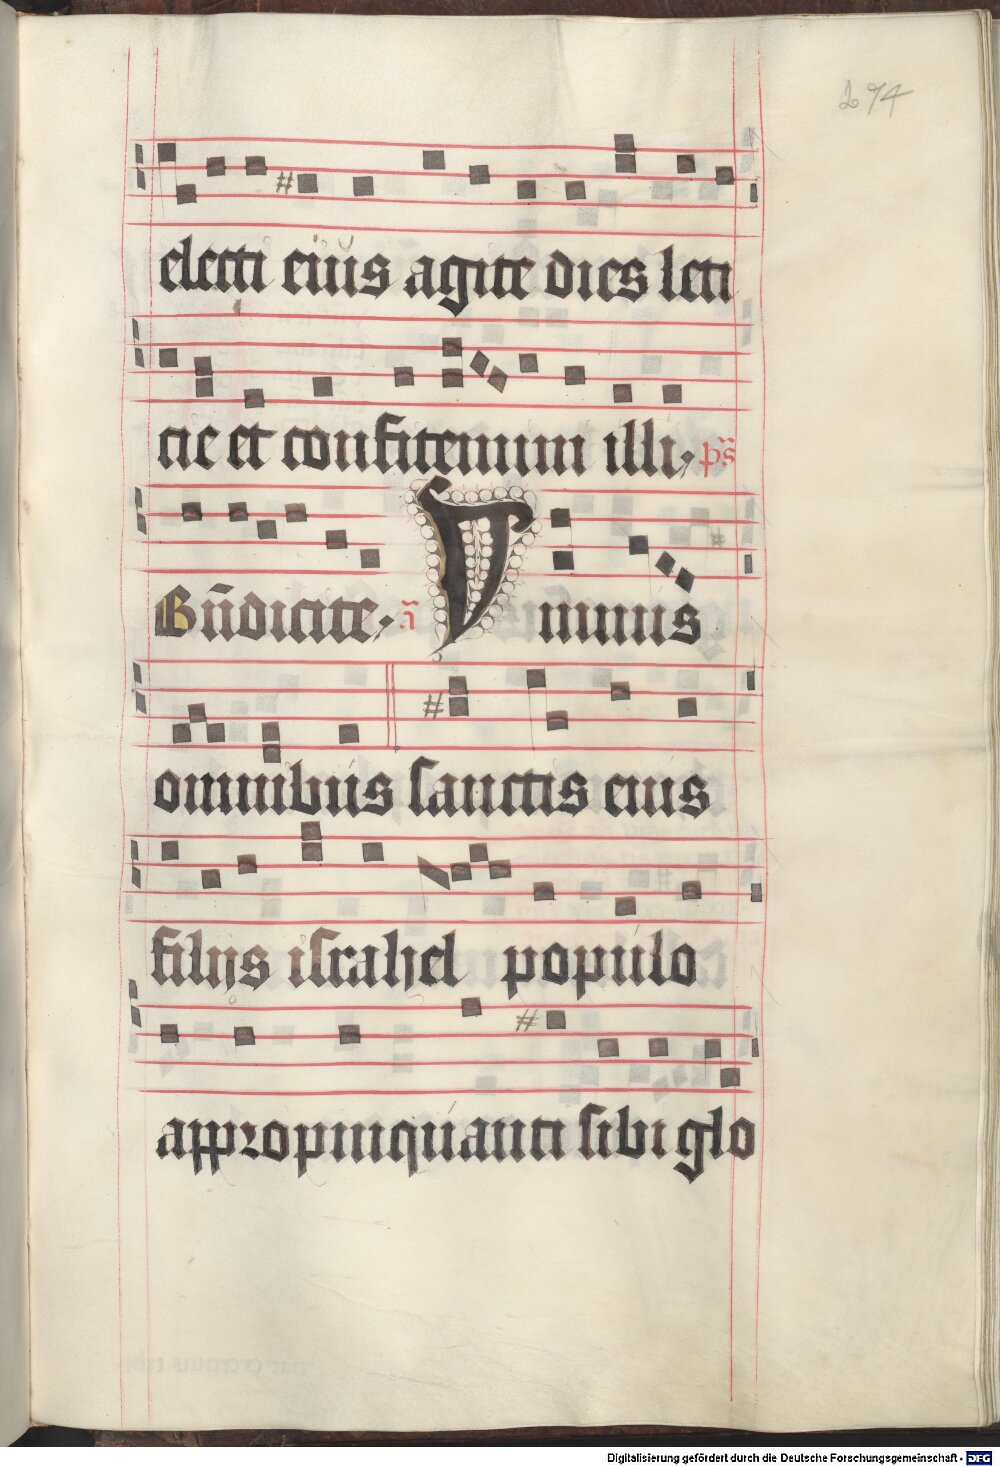 274
electi eius agite dies leti
cie et confitemini illi, ps̄
Bn̄dicite, a̅ Ymnus
omnibus sanctis eius
filijs israhel populo
appropinquanti sibi glo
Digitalisierung gefördert durch die Deutsche Forschungsgemeinschaft - DFG